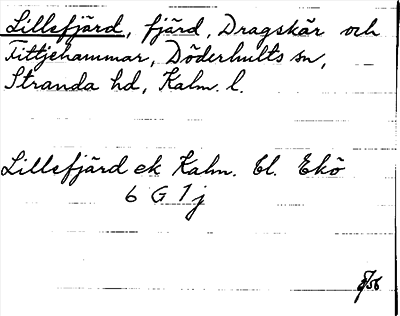 Lillefjärd, fjärd, Dragskär och
Fittjehammar, Döderhults sn,
Stranda hd, Kalm. l.
Lillefjärd ek Kalm. bl. Ekö
6 G 1 j